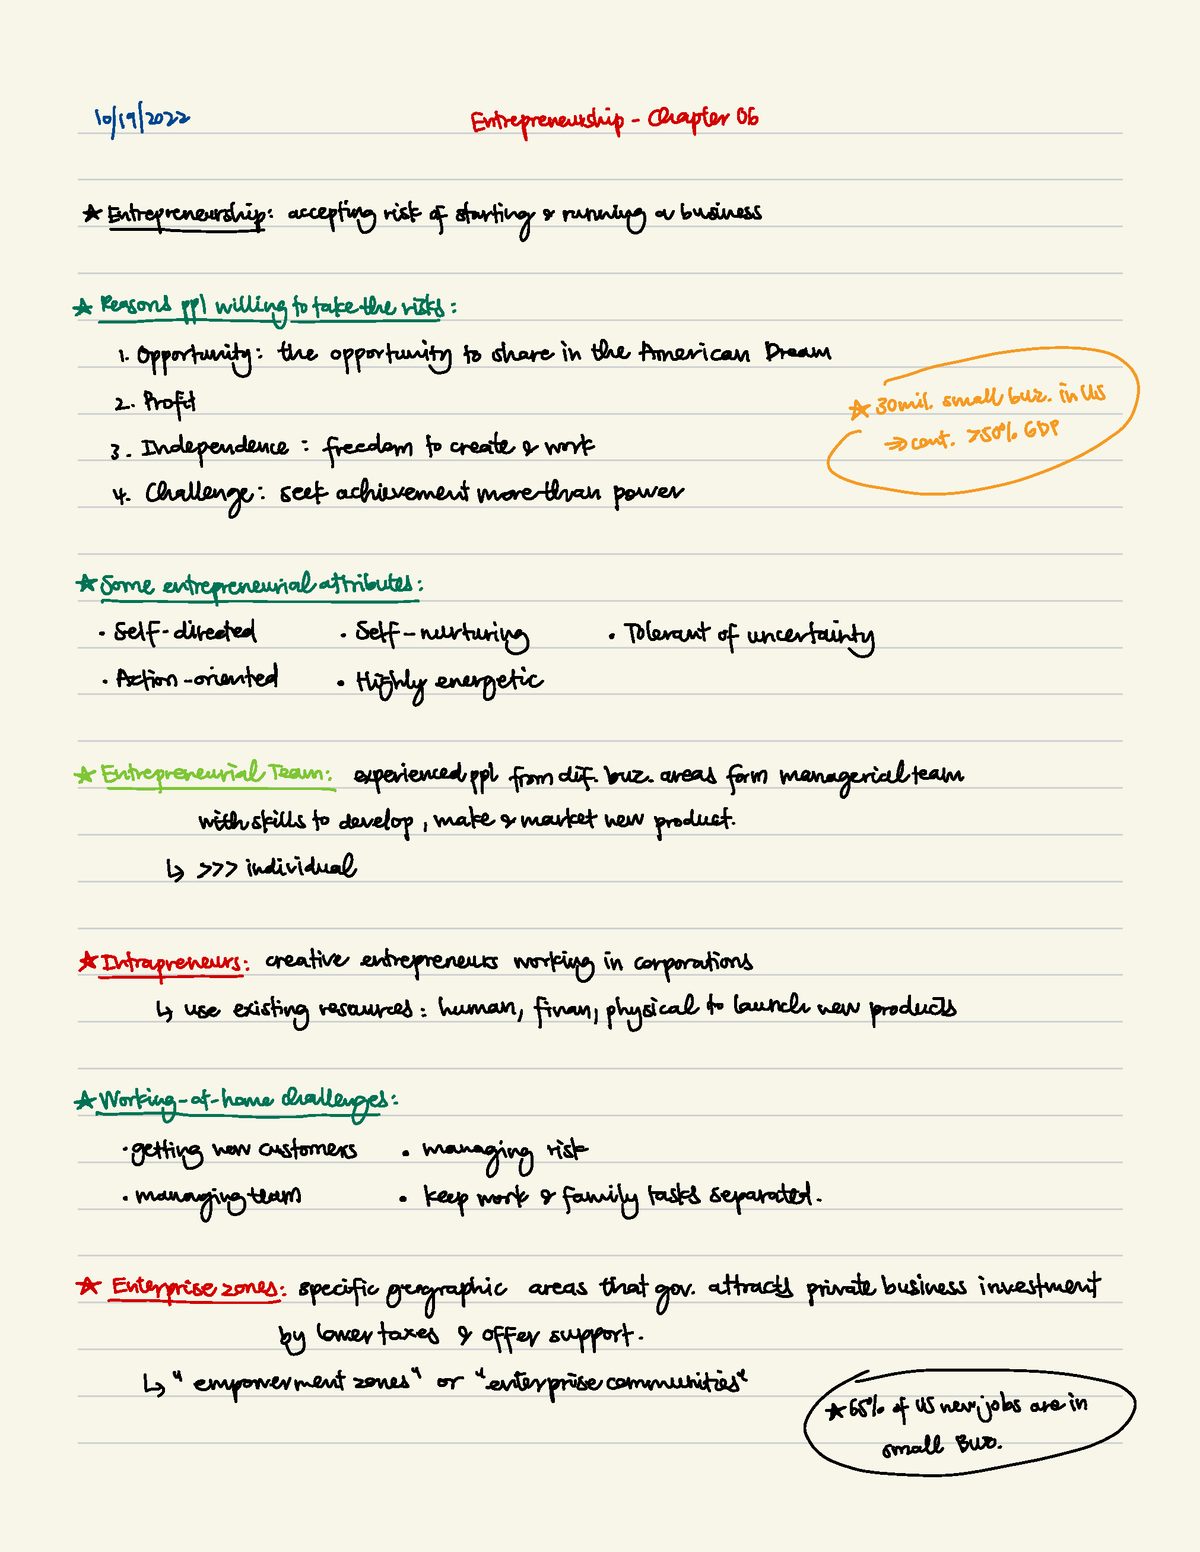 10/19/2022 Entrepreneurship - Chapter 06
★ Entrepreneurship: accepting risk of starting & running a business
★ Reasons ppl willing to take the risks:
1. Opportunity: the opportunity to share in the American Dream
2. Profit
★ 30mil. small buz. in US
⇒ cont. >50% GDP
3. Independence: freedom to create & work
4. Challenge: seek achievement more than power
★ Some entrepreneurial attributes:
• Self-directed • Self-nurturing • Tolerant of uncertainty
• Action-oriented • Highly energetic
★ Entrepreneurial Team: experienced ppl from dif. buz. areas form managerial team
with skills to develop, make & market new product.
↳ >>> individual
★ Intrapreneurs: creative entrepreneurs working in corporations
↳ use existing resources: human, finan, physical to launch new products
★ Working-at-home challenges:
• getting new customers • managing risk
• managing team • keep work & family tasks separated.
★ Enterprise zones: specific geographic areas that gov. attracts private business investment
by lower taxes & offer support.
↳ "empowerment zones" or "enterprise communities"
★ 65% of US new jobs are in
small Buz.